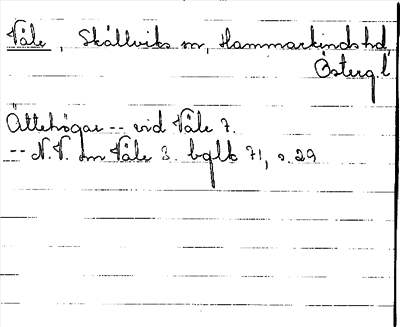 Våle, Skällviks sn, Hammarkinds hd,
Österg.l
Ättehögar -- vid Våle 7.
-- N.V. om Våle 3. bglb 71, s. 29